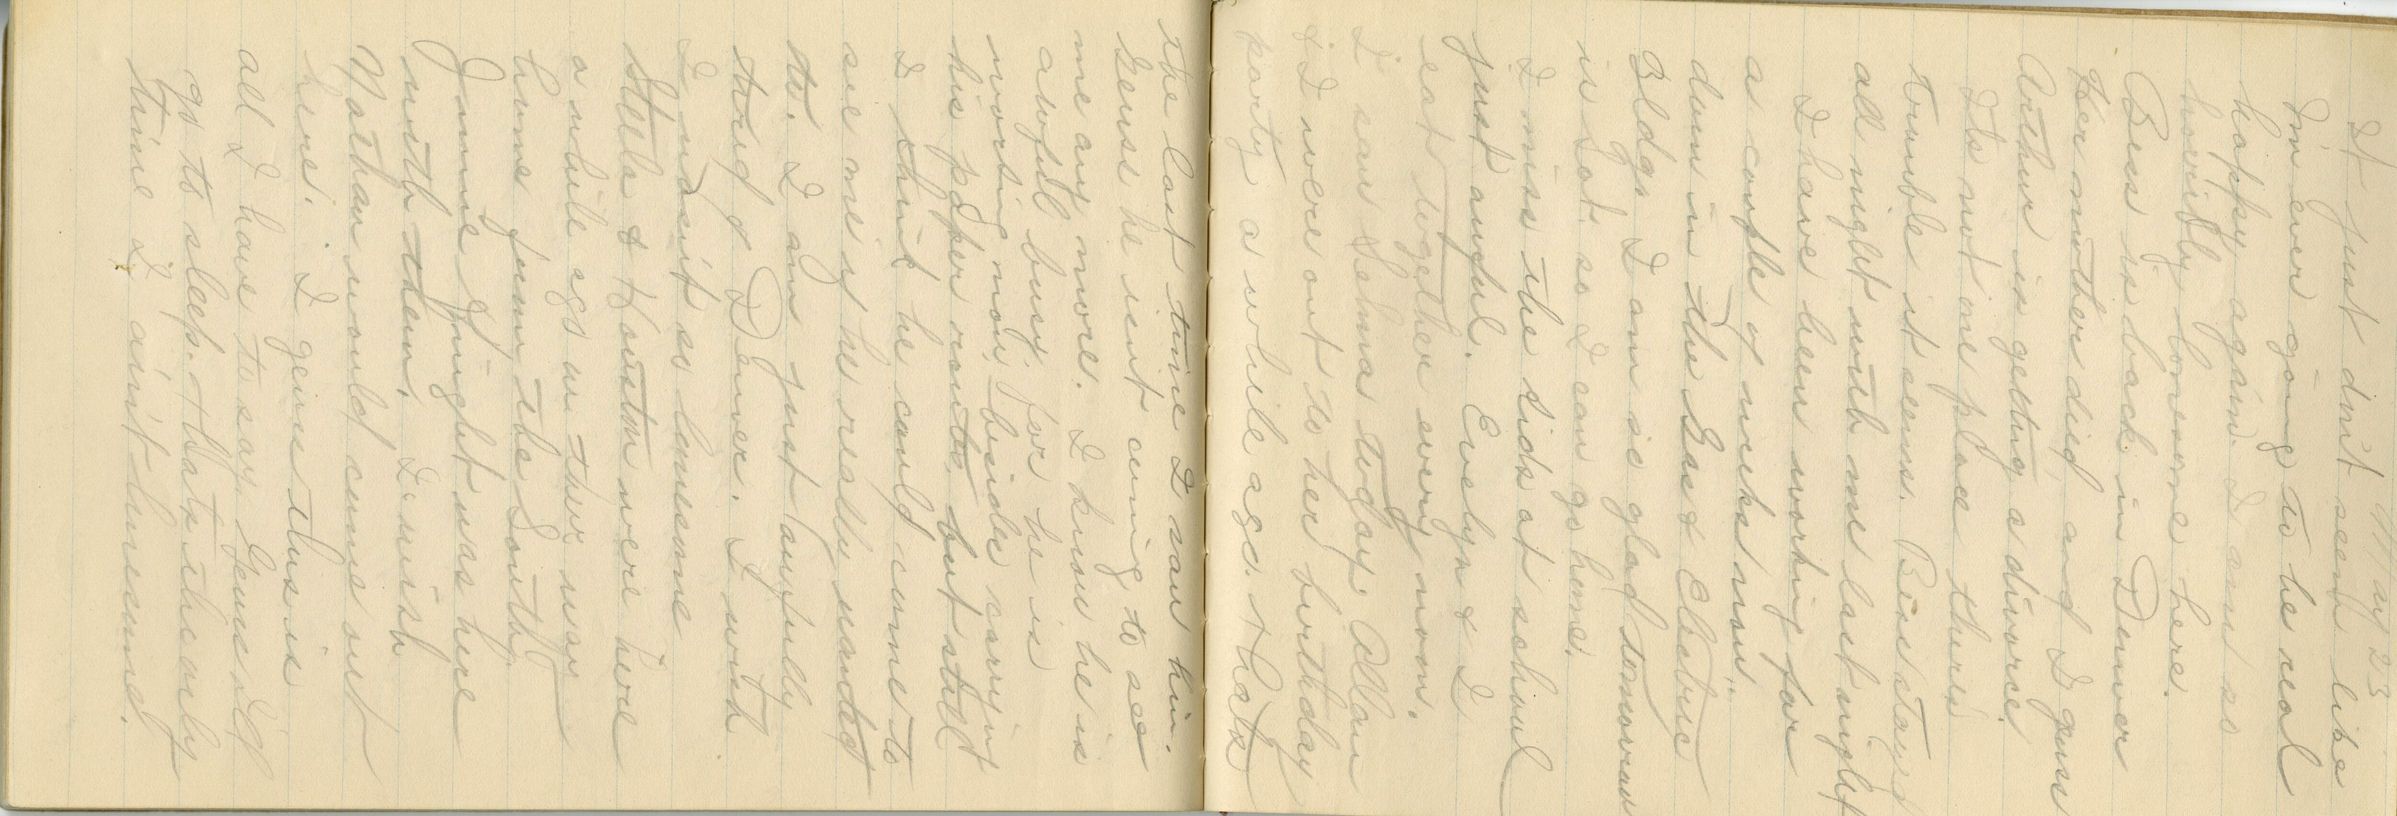 May 23
It just don't seem like
I'm ever going to be real
happy again. I am so
horribly lonesome here.
Bess is back in Denver
Her mother died and I guess
Arthur is getting a divorce
Its not one place theres
trouble it seems. Bess stayed
all night with me last night
I have been working for
a couple of weeks now
down in the Gas & Electric
Bldg. I am so glad tomorrow
is Sat. so I can go home.
I miss the kids at school
just awful. Evelyn & I
eat together every noon.
I saw Thelma today. Allan
& I were out to her birthday
party a while ago. Thats
the last time I saw him.
Guess he isn't coming to see
me any more. I know he is
awful busy. for he is
working now, beside carrying
his paper route, but still
I think he could come to
see me if he really wanted
to. I am just awfully
tired of Denver. I wish
I wasn't so lonesome
Stella & Houston were here
a while ago on their way
home from the South.
Jimmie Knight was here
with them. I wish
Nathan would come out
here. I guess this is
all I have to say. Guess I'll
go to sleep. Thats the only
time I ain't lonesome.